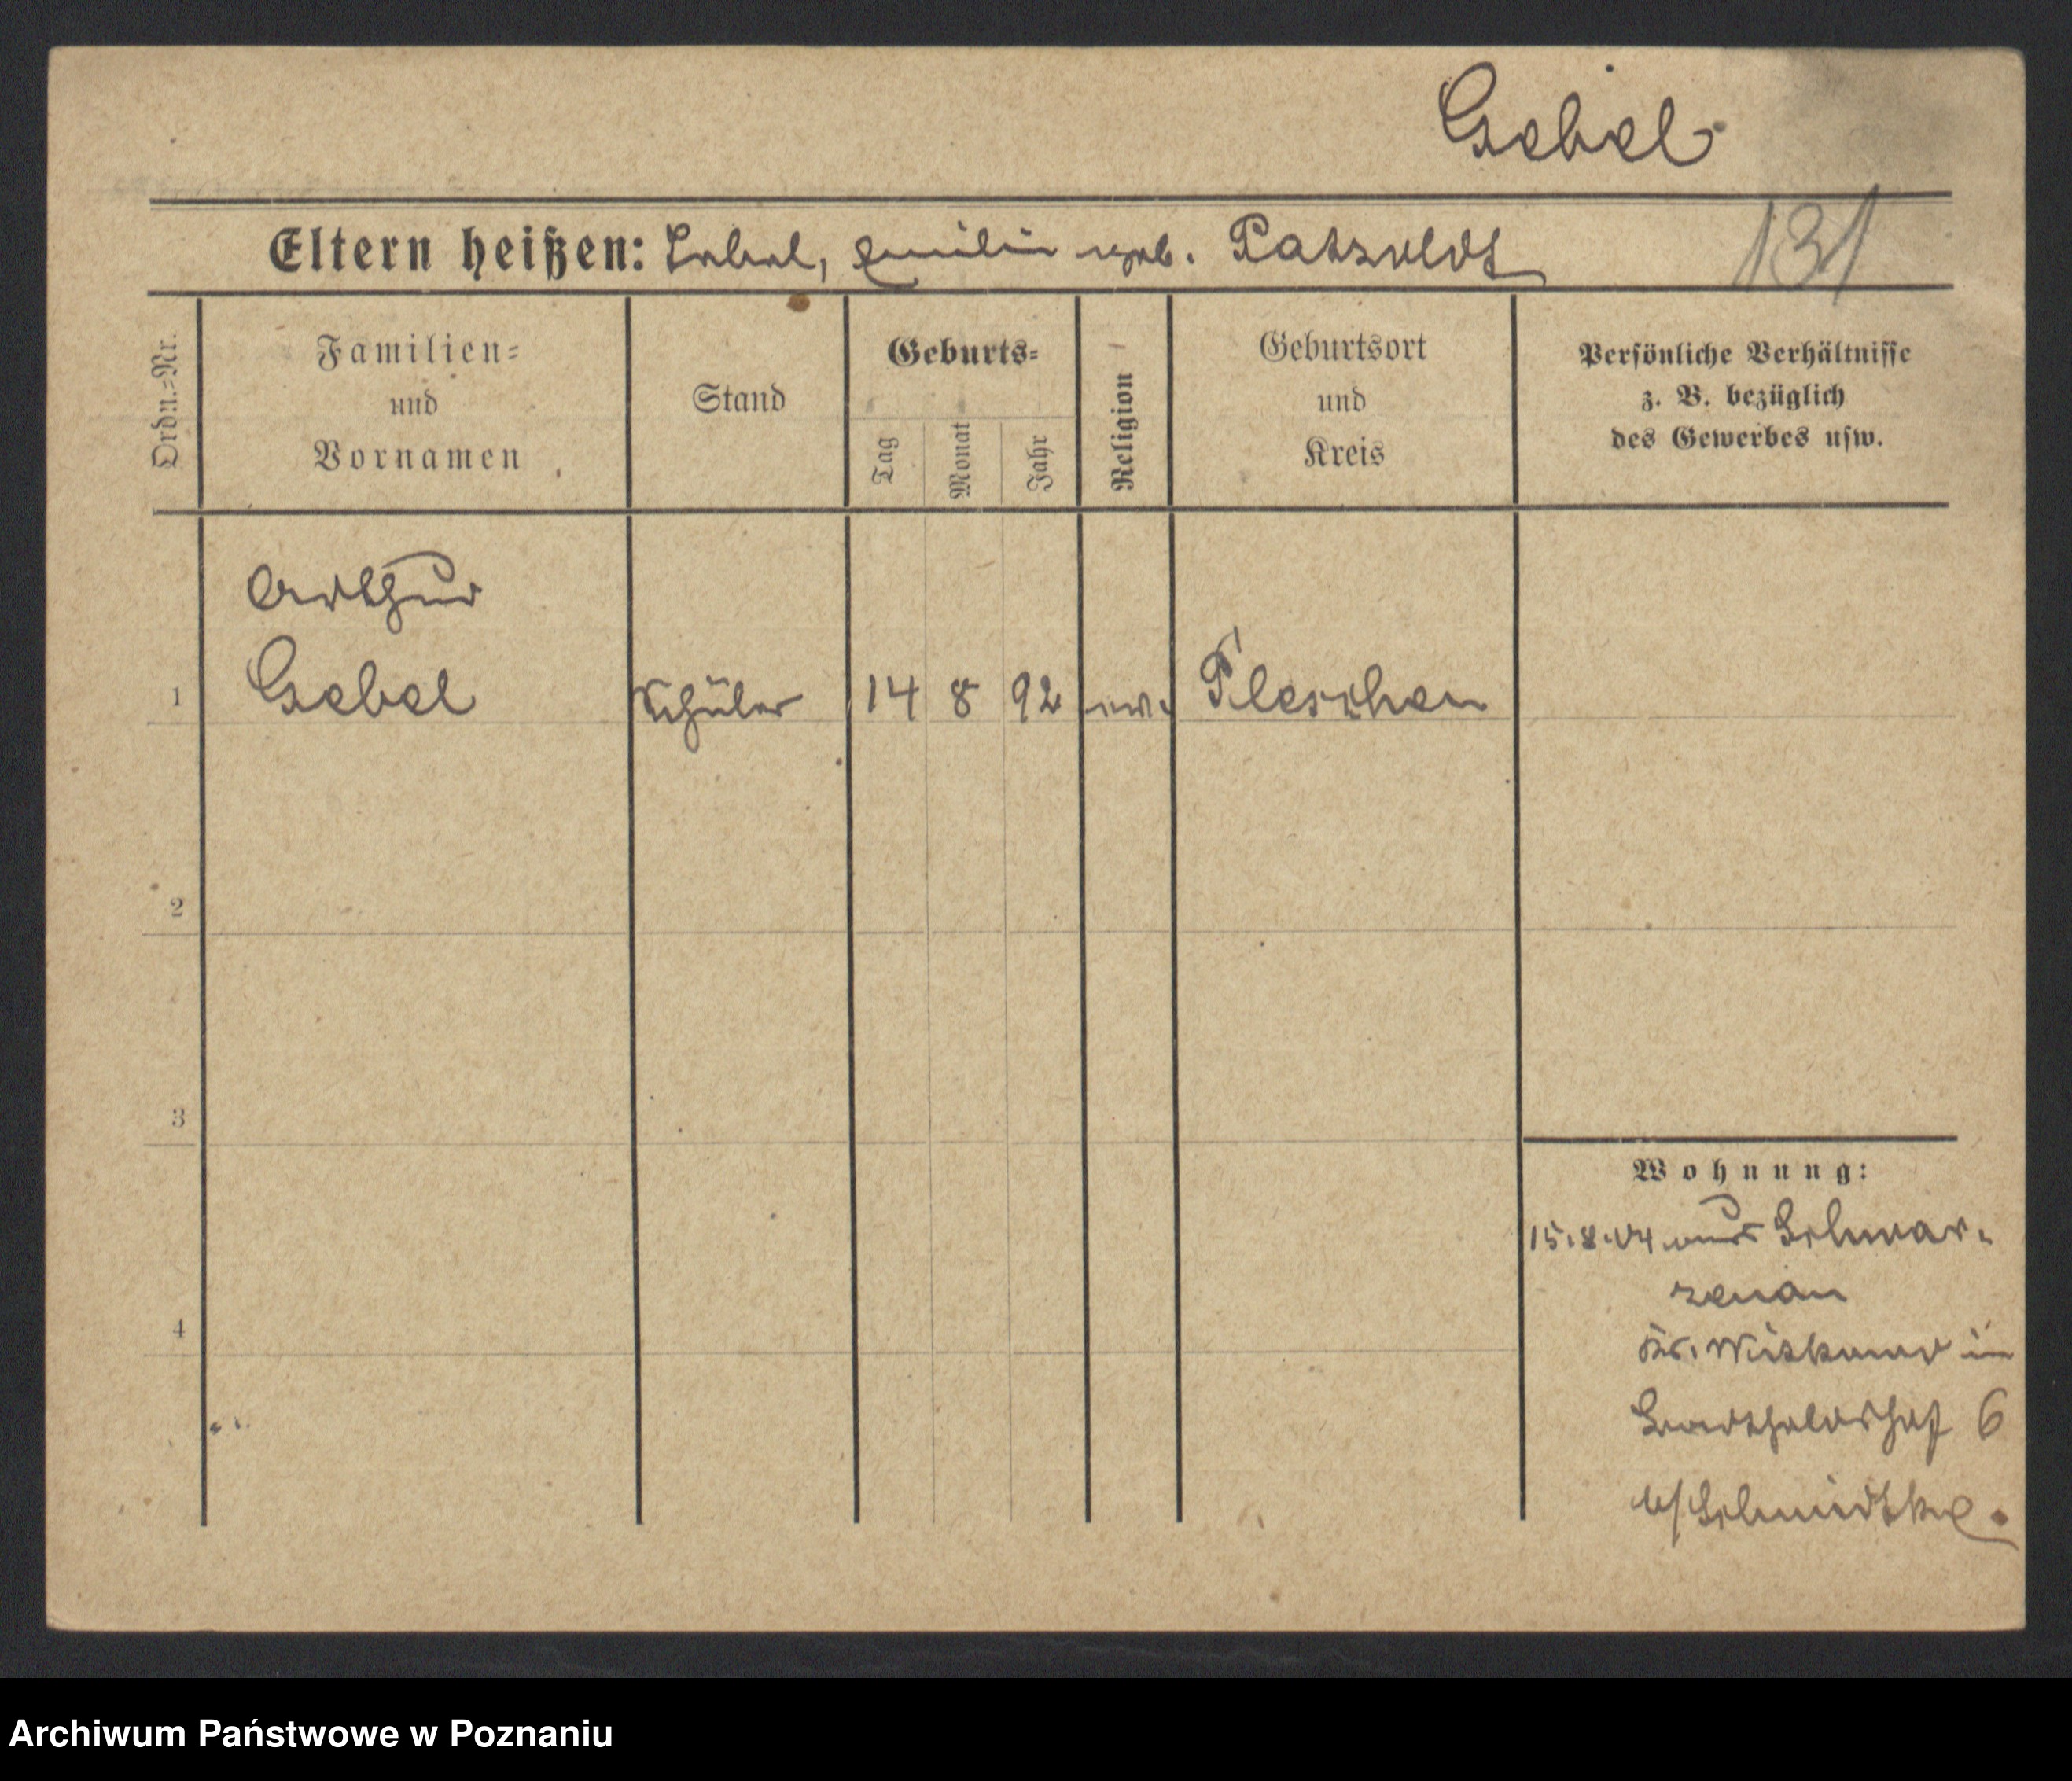 Gebel
Eltern heißen: Gebel, Emilie geb. Patzoldt
131
Ordn.=Nr.
Familien=
und
Vornamen
Stand
Geburts=
Tag
Monat
Jahr
Religion
Geburtsort
und
Kreis
Persönliche Verhältnisse
z. B. bezüglich
des Gewerbes usw.
Arthur
1 Gebel Schüler 14 8 92 ev. Pleschen
2
3
4
Wohnung:
15.8.04 aus Schwar-
zenau
Kr. Witkowo in
6
b/ Schmidtke.
Archiwum Państwowe w Poznaniu